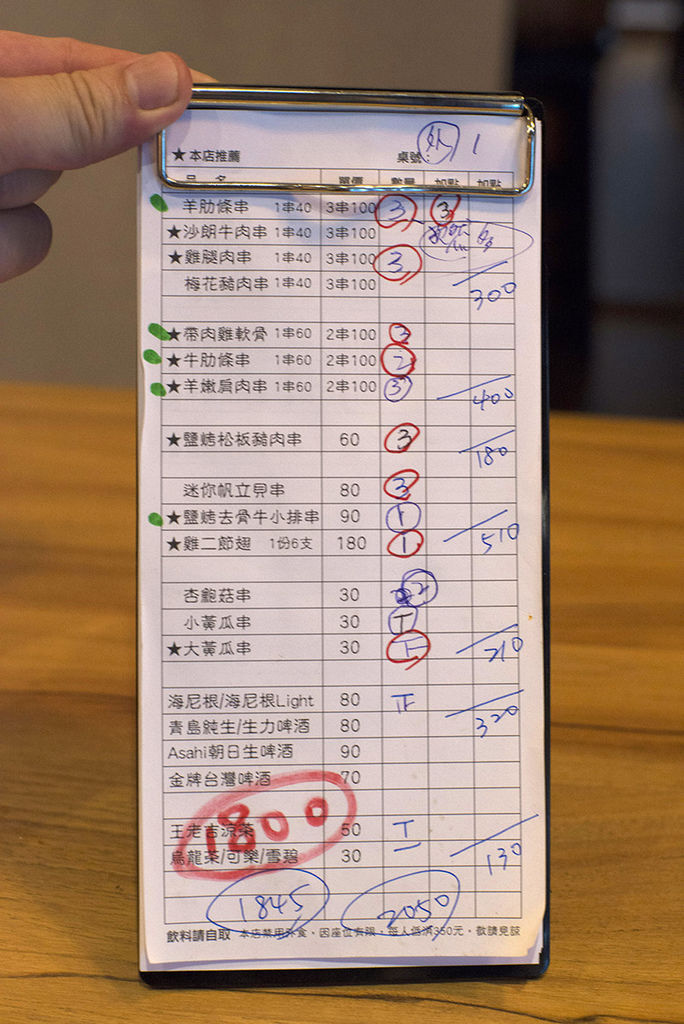 外 1
★本店推薦 桌號:
品名 單價 數量 加點 加點
羊肋條串 1串40 3串100 3 3
★沙朗牛肉串 1串40 3串100
★雞腿肉串 1串40 3串100 3
梅花豬肉串 1串40 3串100 300
★帶肉雞軟骨 1串60 2串100 3
★牛肋條串 1串60 2串100 2
★羊嫩肩肉串 1串60 2串100 3 400
★鹽烤松板豬肉串 60 3 180
迷你帆立貝串 80 3
★鹽烤去骨牛小排串 90 1
★雞二節翅 1份6支 180 1 510
杏鮑菇串 30 2
小黃瓜串 30 T
★大黃瓜串 30 下 210
海尼根/海尼根Light 80 正 320
青島純生/生力啤酒 80
Asahi朝日生啤酒 90
金牌台灣啤酒 70
1800
王老吉涼茶 50 T
烏龍茶/可樂/雪碧 30 一 130
1845 2050
飲料請自取 本店禁用外食、因座位有限,每人低消350元,敬請見諒